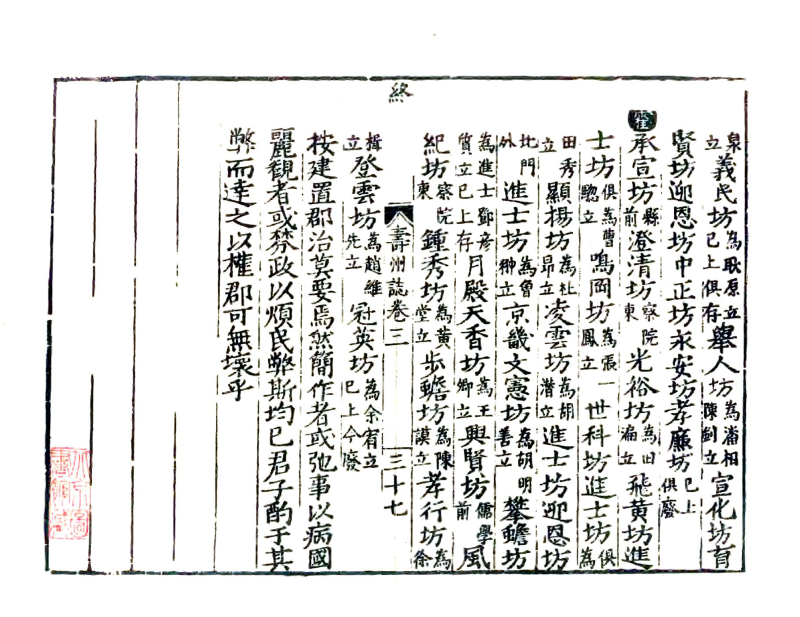 終
泉立義民坊為耿原立已上俱存舉人坊為潘相陳釗立宣化坊育
賢坊迎恩坊中正坊永安坊孝廉坊已上俱廢
霍承宣坊縣前澄清坊察院東光裕坊為田立飛黃坊進
士坊俱為曹聰立鳴岡坊為張鳳立一世科坊進士坊俱為
田秀立顯揚坊為杜昂立凌雲坊為胡潛立進士坊迎恩坊
北門外進士坊為魯翀立京畿文憲坊為胡明善立攀蟾坊
為進士鄧彥質立已上存月殿天香坊為王卿立興賢坊儒學前風
紀坊察院東鍾秀坊為黃堂立步蟾坊為陳謨立孝行坊為徐
壽州誌卷三 三十七
楫立登雲坊為趙維先立冠英坊為余宥立已上今廢
按建置郡治莫要焉然簡作者或弛事以病國
麗觀者或棼政以煩民弊斯均已君子酌于其
弊而達之以權郡可無壞乎